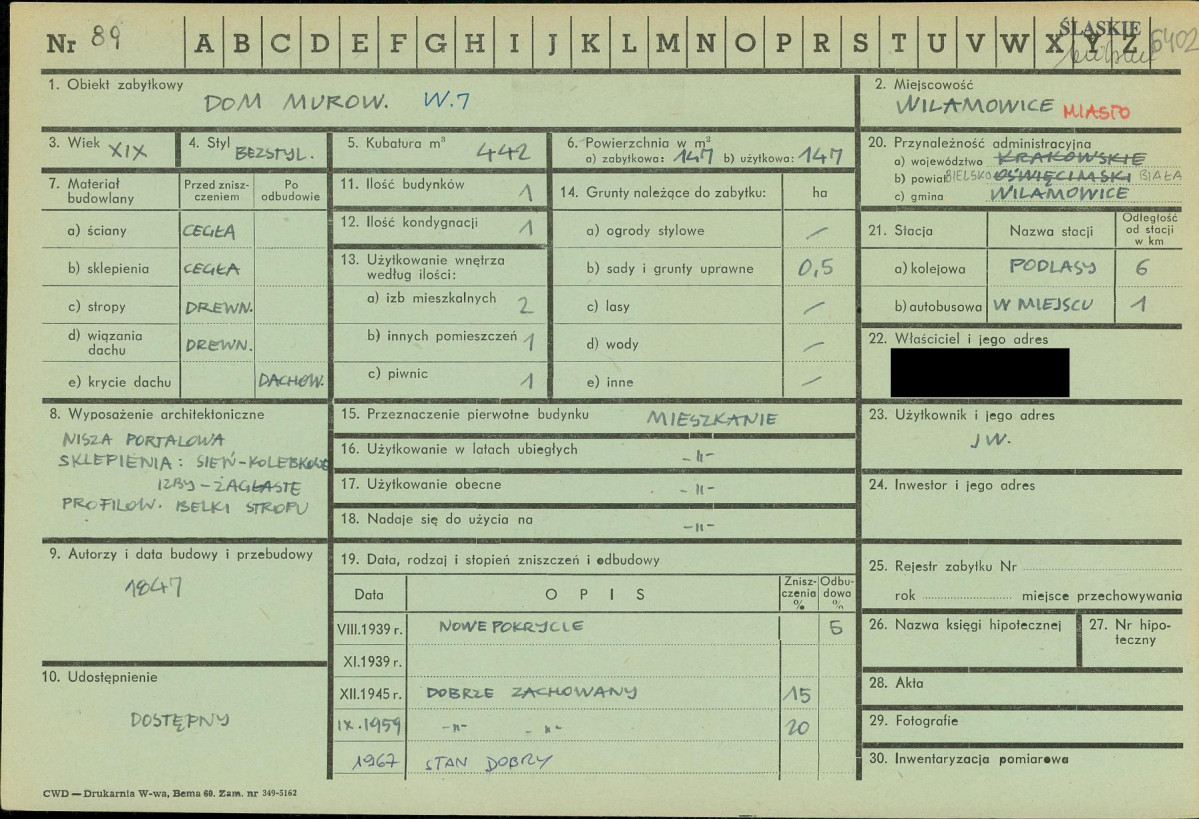 Nr 89 A B C D E F G H I J K L M N O P R S T U V W X Y Z
ŚLĄSKIE
6402
1. Obiekt zabytkowy
DOM MUROW. W.7
2. Miejscowość
WILAMOWICE MIASTO
3. Wiek XIX
4. Styl BEZSTYL.
5. Kubatura m³ 442
6. Powierzchnia w m²
a) zabytkowa: 147 b) użytkowa: 147
20. Przynależność administracyjna
a) województwo KRAKOWSKIE
b) powiat BIELSKO OŚWIĘCIMSKI BIAŁA
c) gmina WILAMOWICE
7. Materiał budowlany
Przed zniszczeniem
Po odbudowie
a) ściany CEGŁA
b) sklepienia CEGŁA
c) stropy DREWN.
d) wiązania dachu DREWN.
e) krycie dachu DACHÓW.
11. Ilość budynków 1
12. Ilość kondygnacji 1
13. Użytkowanie wnętrza
według ilości:
a) izb mieszkalnych 2
b) innych pomieszczeń 1
c) piwnic 1
14. Grunty należące do zabytku: ha
a) ogrody stylowe —
b) sady i grunty uprawne 0,5
c) lasy —
d) wody —
e) inne —
21. Stacja
Nazwa stacji
Odległość
od stacji
w km
a) kolejowa PODLASY 6
b) autobusowa W MIEJSCU 1
22. Właściciel i jego adres
8. Wyposażenie architektoniczne
NISZA PORTALOWA
SKLEPIENIA: SIEŃ-KOLEBKOWE
IZBY-ŻAGLASTE
PROFILOW. BELKI STROPU
15. Przeznaczenie pierwotne budynku MIESZKANIE
16. Użytkowanie w latach ubiegłych -"-
17. Użytkowanie obecne -"-
18. Nadaje się do użycia na -"-
23. Użytkownik i jego adres
JW.
24. Inwestor i jego adres
9. Autorzy i data budowy i przebudowy
1847
10. Udostępnienie
DOSTĘPNY
19. Data, rodzaj i stopień zniszczeń i odbudowy
Data
O P I S
Zniszczenia %
Odbudowa %
VIII.1939 r. NOWE POKRYCIE 5
XI.1939 r.
XII.1945 r. DOBRZE ZACHOWANY 15
IX.1959 -"- -"- 20
1967 STAN DOBRY
25. Rejestr zabytku Nr
rok miejsce przechowywania
26. Nazwa księgi hipotecznej
27. Nr hipoteczny
28. Akta
29. Fotografie
30. Inwentaryzacja pomiarowa
CWD — Drukarnia W-wa, Bema 60. Zam. nr 349-5162